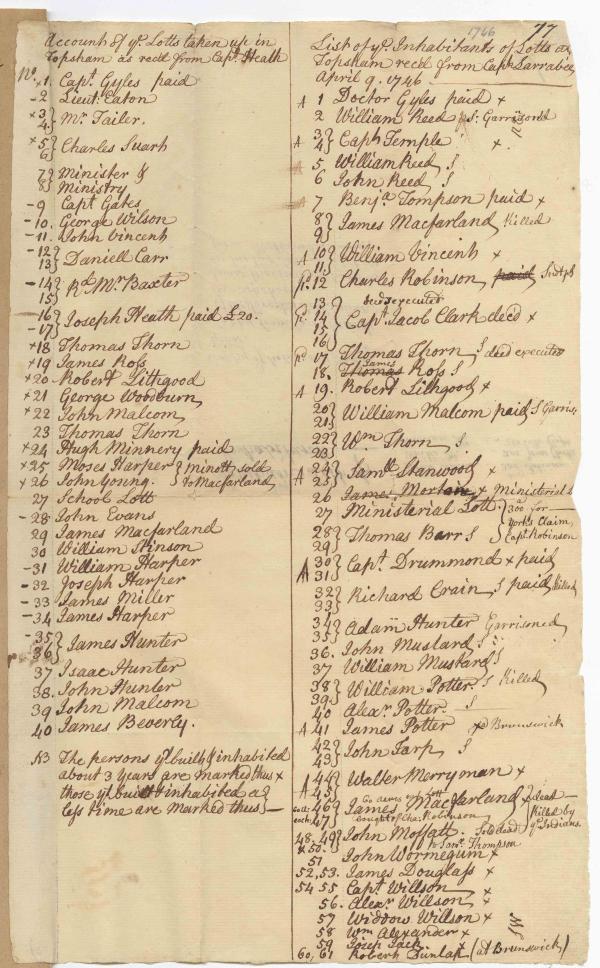 1746
77
Account of ye Lotts taken up in
Topsham as recd from Capt. Heath
No.
x1. Capt Gyles paid
-2 Lieut. Eaton
x3} Mr. Tailer.
4}
x5} Charles Suarh
6}
7} Minister &
8} Ministry
-9 Capt Gates
-10. George Wilson
-11. John Vincent
-12} Daniell Carr
13}
-14} Rd Mr Baxter
15}
-16} Joseph Heath paid £20.
-17}
x18 Thomas Thorn
x19 James Ross
x20 Robert Lithgood
x21 George Woodburn
x22 John Malcom
23 Thomas Thorn
x24 Hugh Minnery paid
x25 Moses Harper } minott sold
x26 John Young. } to Macfarland
27 School Lott
-28 John Evans
29 James Macfarland
30 William Stinson
-31 William Harper
-32 Joseph Harper
-33 James Miller
-34 James Harper
-35} James Hunter
36}
37 Isaac Hunter
38. John Hunter
39 John Malcom
40 James Beverly.
NB The persons yt built & inhabited
about 3 Years are marked thus x
those yt built & inhabited a
less time are marked thus -
List of ye. Inhabitants of Lotts at
Topsham recd from Capt Larrabee
April 9. 1746
A 1 Doctor Gyles paid x
2 William Reed S. Garrisond
A 3} Capt Temple x
4}
A 5 William Reed S
6 John Reed S
A 7 Benja Tompson paid x
8} James Macfarland Killed
9}
A 10} William Vincent x
11}
pd. 12 Charles Robinson paid S
13 deed executed
pd. 14} Capt Jacob Clark deed x
15}
16}
pd 17 Thomas Thorn S deed executed
18. Thomas James Ross S
A 19. Robert Lithgood x
20} William Malcom paid S Garriso
21}
22} Wm Thorn S
23}
A 24} Samll Stanwood x
25}
26 James Morton x Ministerial
27 Ministerial Lott. 300 for
York's Claim,
Capt Robinson
28} Thomas Barr S
29}
A 30} Capt. Drummond x paid
31}
32} Richard Crain S paid Killed
33}
34} Adam Hunter Garrisoned
35}
36. John Mustard S
37 William Mustard S
38} William Potter. S Killed
39}
40 Alexr Potter. S
A 41 James Potter Brunswick
42} John Tarp S
43}
A 44} Walter Merryman x
45}
60 acres each Lott
46} James Macfarland x dead
47} Killed by ye Indians.
bought of Cha. Robinson
48. 49} John Moffatt. Sold dead
x50. to James Thompson
51 John Wormegum x
52, 53. James Douglass x
54 55 Capt Willson x
56. Alexr Willson x
57 Widdow Willson x
58 Wm Alexander x
59 Joseph Jack.
60, 61 Robert Dunlap (at Brunswick)